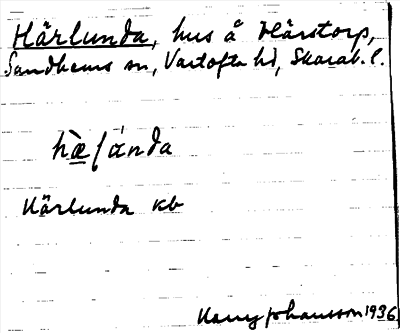 Härlunda, hus å Härstorp,
Sandhems sn, Vartofta hd, Skarab. l.
hæ̀ʃánda
Härlunda kb
Harry Johansson 1936